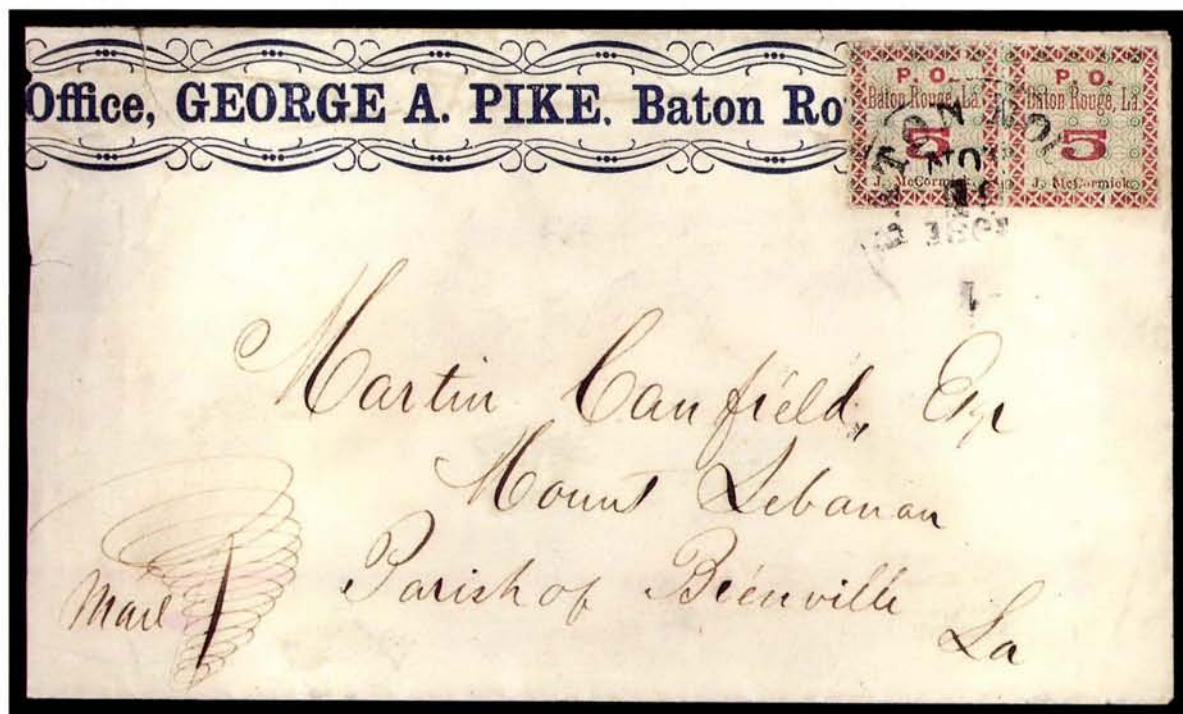 Office, GEORGE A. PIKE. Baton Ro
P. O.
Baton Rouge, La.
5
J. McCormick
P. O.
Baton Rouge, La.
5
J. McCormick
BATON ROU
NOV
Martin Canfield, Esq
Mount Lebanan
Parish of Bienville
La
Mail